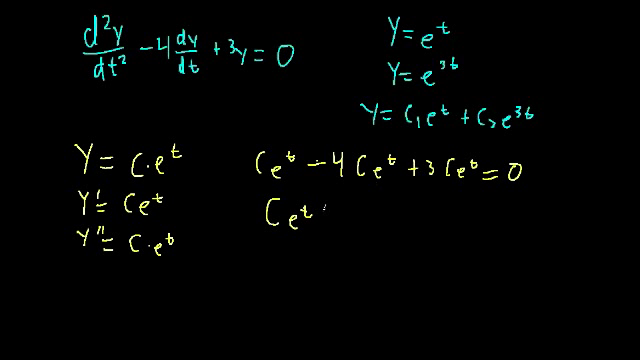 d²y/dt² - 4 dy/dt + 3y = 0
y = e^t
y = e^{3t}
y = c₁e^t + c₂e^{3t}
y = c·e^t
y' = ce^t
y'' = c·e^t
ce^t - 4ce^t + 3ce^t = 0
ce^t